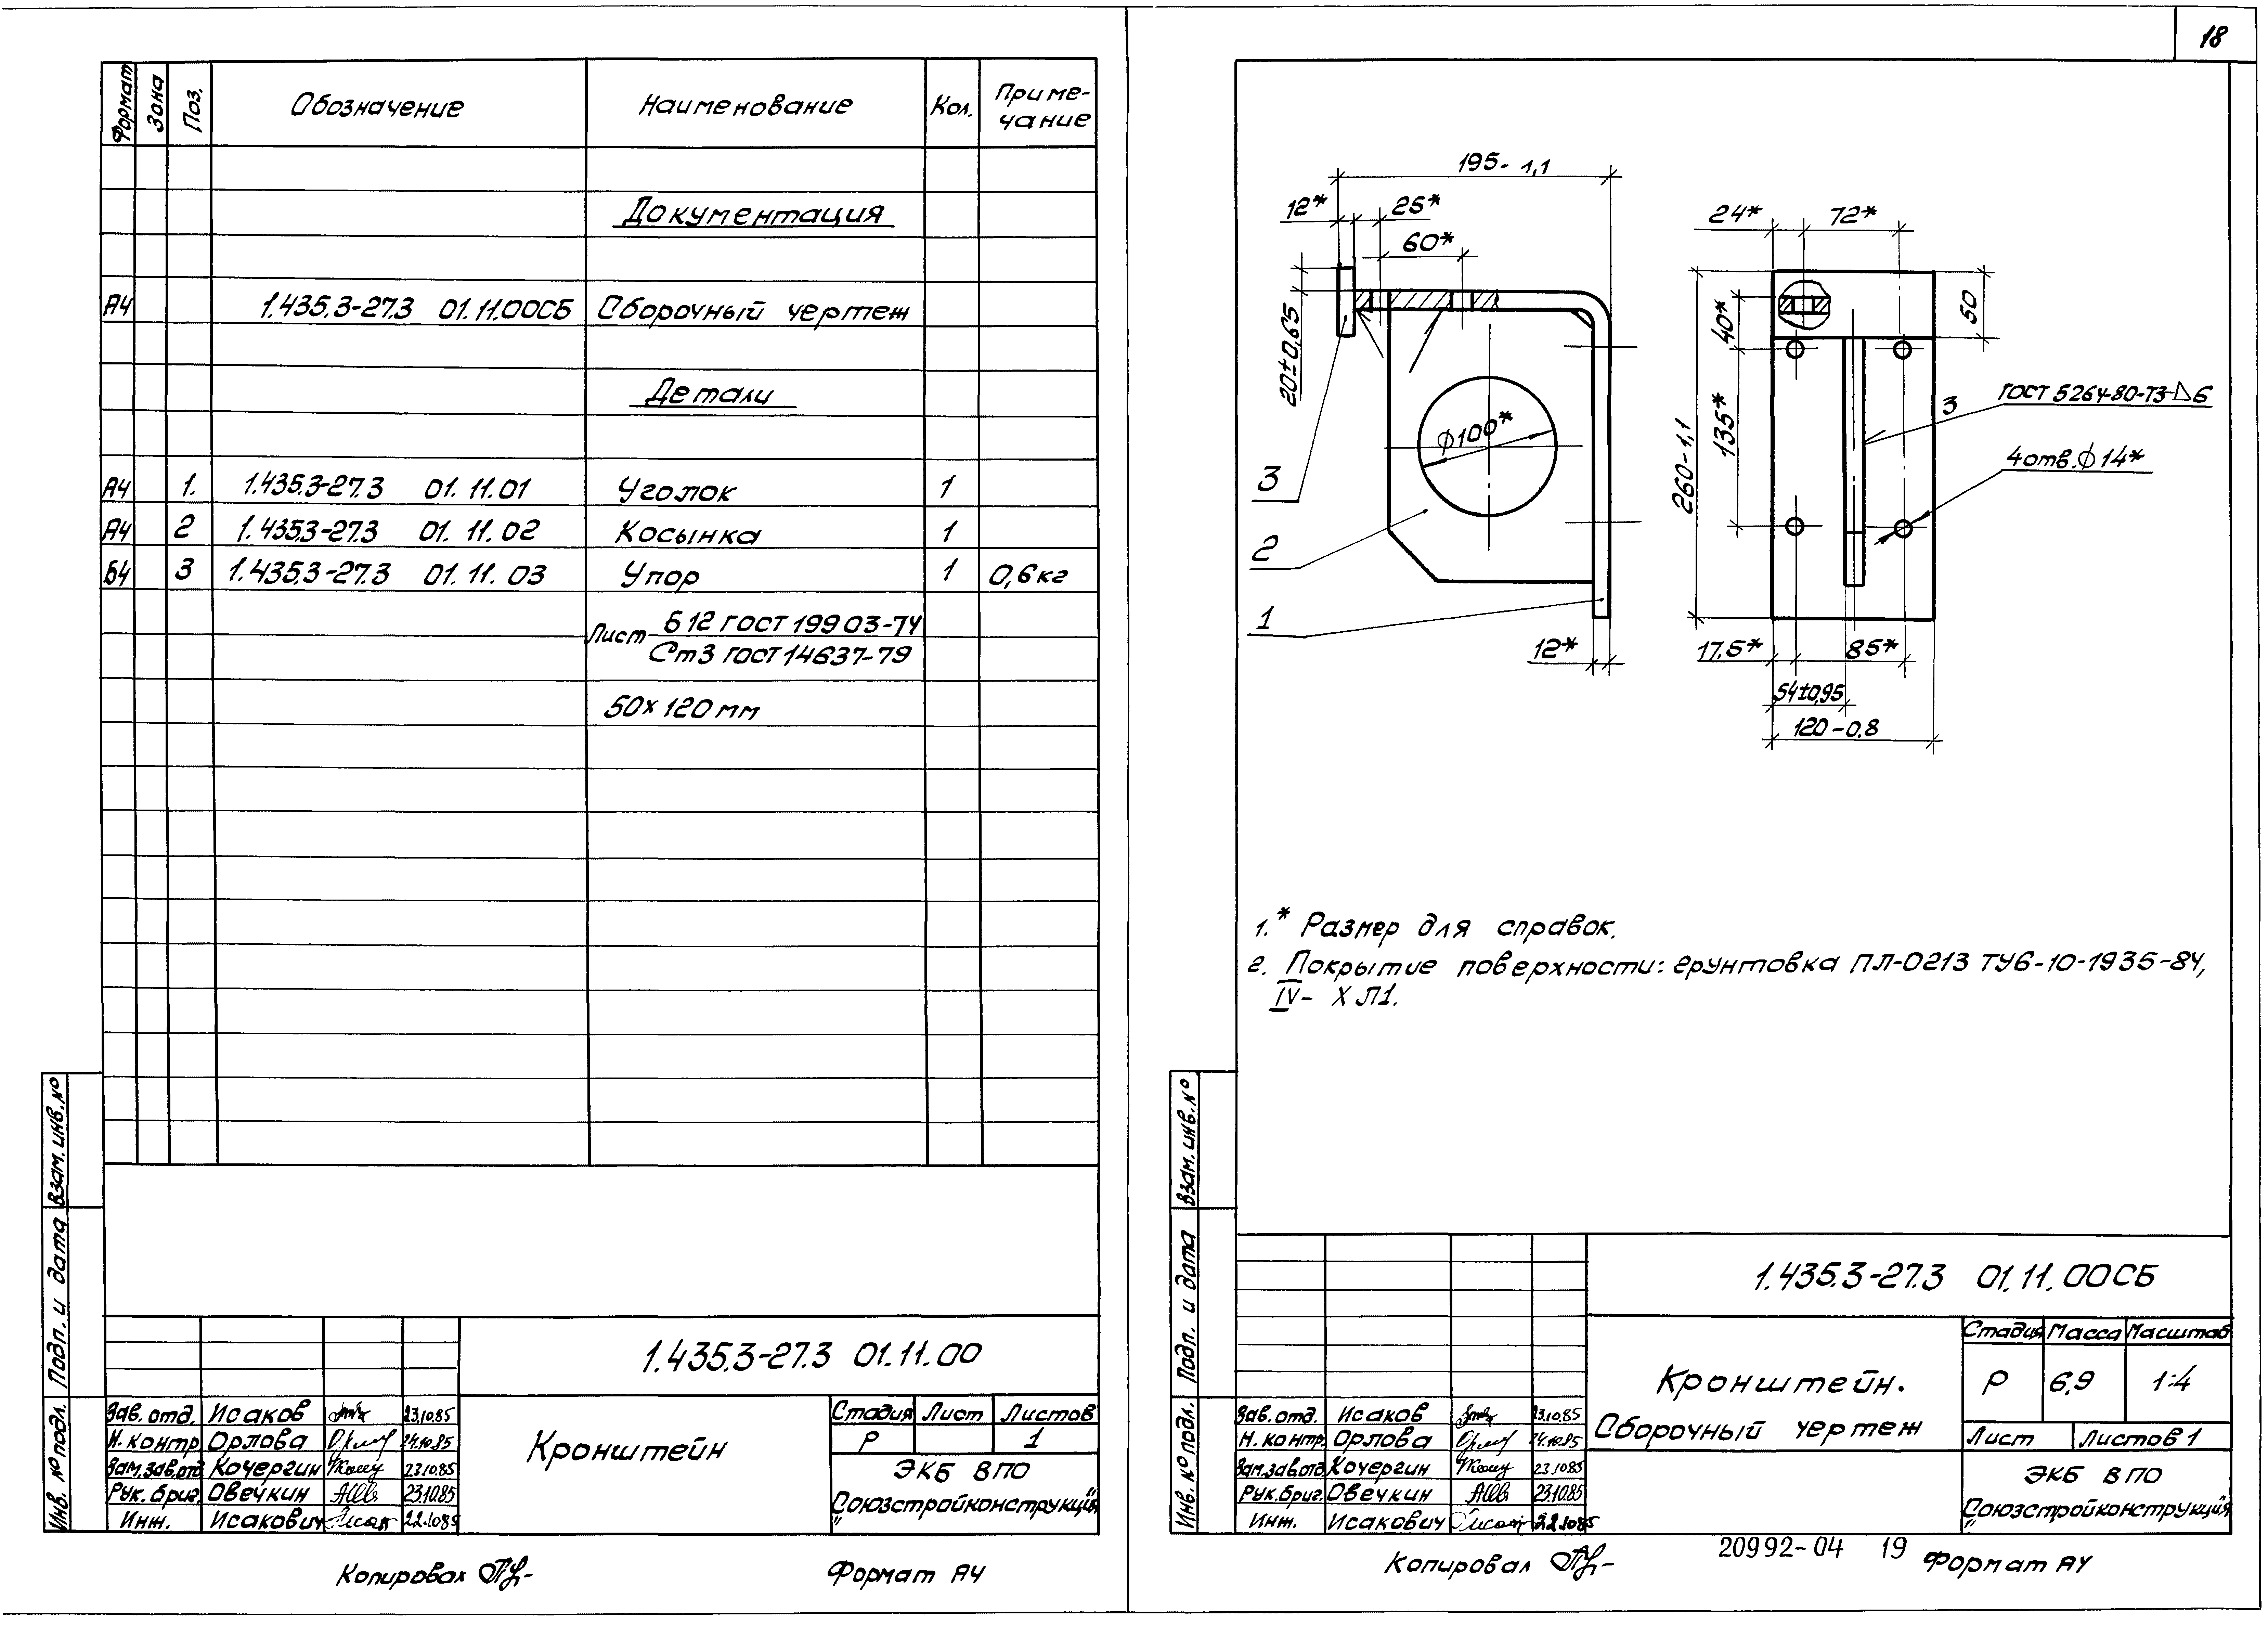 18
Формат Зона Поз. Обозначение Наименование Кол. Приме-
чание
Документация
А4 1.435.3-27.3 01.11.00СБ Сборочный чертеж
Детали
А4 1. 1.435.3-27.3 01.11.01 Уголок 1
А4 2 1.435.3-27.3 01.11.02 Косынка 1
Б4 3 1.435.3-27.3 01.11.03 Упор 1 0,6кг
Лист Б 12 ГОСТ 19903-74
Ст3 ГОСТ 14637-79
50х120мм
Взам. инв. №
Подп. и дата
Инв. № подл.
1.435.3-27.3 01.11.00
Зав. отд. Исаков 23.10.85
Н. контр. Орлова 24.10.85
Зам. зав. отд Кочергин 23.10.85
Рук. бриг. Овечкин 23.10.85
Инж. Исакович 22.10.85
Кронштейн
Стадия Лист Листов
Р 1
ЭКБ ВПО
"Союзстройконструкция"
Копировал
Формат А4
195-1,1
12* 25*
60*
20±0,65
ϕ100*
3
2
1
12*
24* 72*
40*
50
135*
260-1,1
3 ГОСТ 5264-80-Т3-△6
4отв. ϕ14*
17.5* 85*
54±0,95
120-0.8
1.* Размер для справок.
2. Покрытие поверхности: грунтовка ПЛ-0213 ТУ6-10-1935-84,
IV- ХЛ1.
Взам. инв. №
Подп. и дата
Инв. № подл.
1.435.3-27.3 01.11.00СБ
Зав. отд. Исаков 23.10.85
Н. контр. Орлова 24.10.85
Зам. зав. отд Кочергин 23.10.85
Рук. бриг. Овечкин 23.10.85
Инж. Исакович 22.10.85
Кронштейн.
Сборочный чертеж
Стадия Масса Масштаб
Р 6,9 1:4
Лист Листов 1
ЭКБ ВПО
"Союзстройконструкция"
Копировал
20992-04 19
Формат А4